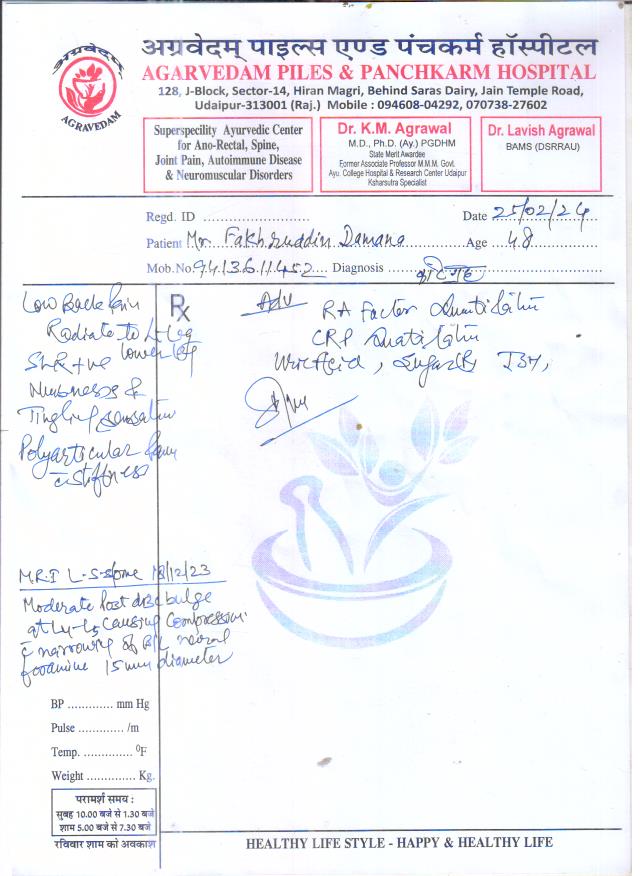 अग्रवेदम्
AGRAVEDAM
अग्रवेदम् पाइल्स एण्ड पंचकर्म हॉस्पीटल
AGARVEDAM PILES & PANCHKARM HOSPITAL
128, J-Block, Sector-14, Hiran Magri, Behind Saras Dairy, Jain Temple Road,
Udaipur-313001 (Raj.) Mobile : 094608-04292, 070738-27602
Superspecility Ayurvedic Center
for Ano-Rectal, Spine,
Joint Pain, Autoimmune Disease
& Neuromuscular Disorders
Dr. K.M. Agrawal
M.D., Ph.D. (Ay.) PGDHM
State Merit Awardee
Former Associate Professor M.M.M. Govt.
Ayu. College Hospital & Research Center Udaipur
Ksharsutra Specialist
Dr. Lavish Agrawal
BAMS (DSRRAU)
Regd. ID ........................... Date 25/02/24
Patient Mr. Fakhruddin Damana Age 48
Mob.No. 9413611452 Diagnosis
Low Back Pain
Radiate to Lt Leg
lower leg
SLR +ve
Numbness &
Tingling sensation
Polyarticular Pain
c̄ stiffness
Rx
Adv RA Factor
CRP
Uric Acid, Sugar (R)
M.R.I L-S-Spine 18/12/23
Moderate Post disc bulge
at L4-L5 causing compression
c̄ narrowing of B/L neural
foramine 15 mm diameter
BP ............. mm Hg
Pulse ............. /m
Temp. .............. ⁰F
Weight .............. Kg.
परामर्श समय :
सुबह 10.00 बजे से 1.30 बजे
शाम 5.00 बजे से 7.30 बजे
रविवार शाम को अवकाश
HEALTHY LIFE STYLE - HAPPY & HEALTHY LIFE